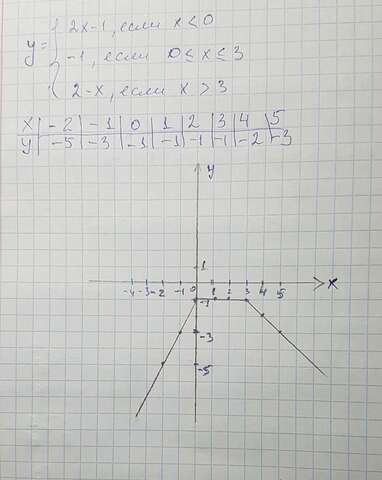 2x-1, если x<0
y= -1, если 0≤x≤3
2-x, если x>3
x | -2 | -1 | 0 | 1 | 2 | 3 | 4 | 5
y | -5 | -3 | -1 | -1 | -1 | -1 | -2 | -3
y
1
-4 -3 -2 -1 0 1 2 3 4 5 x
-1
-3
-5